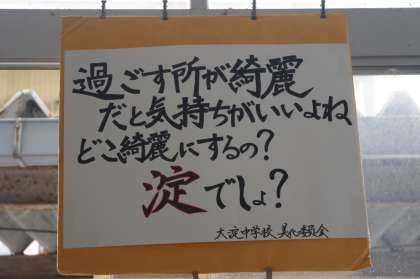 過ごす所が綺麗
だと気持ちがいいよね
どこ綺麗にするの?
淀でしょ?
大淀中学校 美化委員会